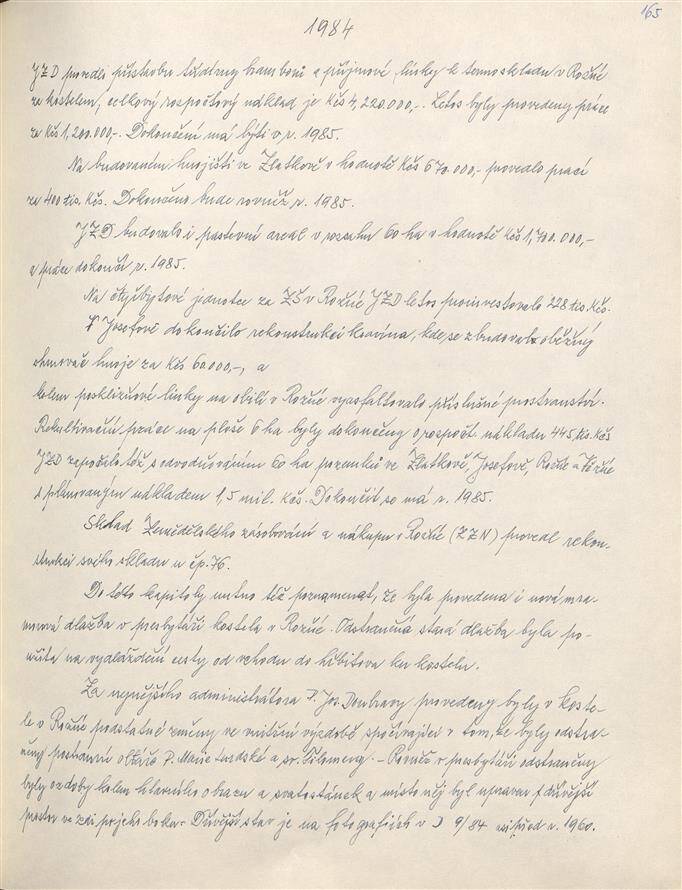 165
1984
JZD provedlo přístavbu třídírny brambor a příjmové linky k termoskladu v Rožné
za kostelem, celkový rozpočtový náklad je Kčs 4,220.000,-. Letos byly provedeny práce
za Kčs 1,200.000,-. Dokončení má býti v r. 1985.
Na budovaném hnojišti ve Zlatkově v hodnotě Kčs 670.000,- provedlo prací
za 400 tis. Kčs. Dokončeno bude rovněž r. 1985.
JZD budovalo i pastevní areál v rozsahu 60 ha v hodnotě Kčs 1,700.000,-
a práce dokončí r. 1985.
Na čtyřbytové jednotce za ZŠ v Rožné JZD letos proinvestovalo 228 tis. Kčs.
V Josefově dokončilo rekonstrukci kravína, kde se zbudoval oběžný
shrnovač hnoje za Kčs 60000,-, a
kolem posklizňové linky na obilí v Rožné vyasfaltovalo příslušné prostranství.
Rekultivační práce na ploše 6 ha byly dokončeny o rozpočt. nákladu 445 tis. Kčs
JZD započalo též s odvodňováním 60 ha pozemků ve Zlatkově, Josefově, Rožné a
s plánovaným nákladem 1,5 mil. Kčs. Dokončit se má r. 1985.
Sklad Zemědělského zásobování a nákupu v Rožné (ZZN) provedl rekon-
strukci svého skladu u čp. 76.
Do této kapitoly nutno též poznamenat, že byla provedena i nová mra-
morová dlažba v presbytáři kostela v Rožné. Odstraněná stará dlažba byla po-
užita na vydláždění cesty od vchodu do hřbitova ku kostelu.
Za nynějšího administrátora P. Jos. Doubravy provedeny byly v koste-
le v Rožné podstatné změny ve vnitřní výzdobě spočívající v tom, že byly odstra-
něny postranní oltáře P. Marie Lurdské a sv. Filomeny. - Rovněž v presbytáři odstraněny
byly ozdoby kolem hlavního obrazu a svatostánek a místo něj byl upraven dřívější
prostor ve zdi po jeho boku. Dřívější stav je na fotografiích v D 9/84 asi před r. 1960.